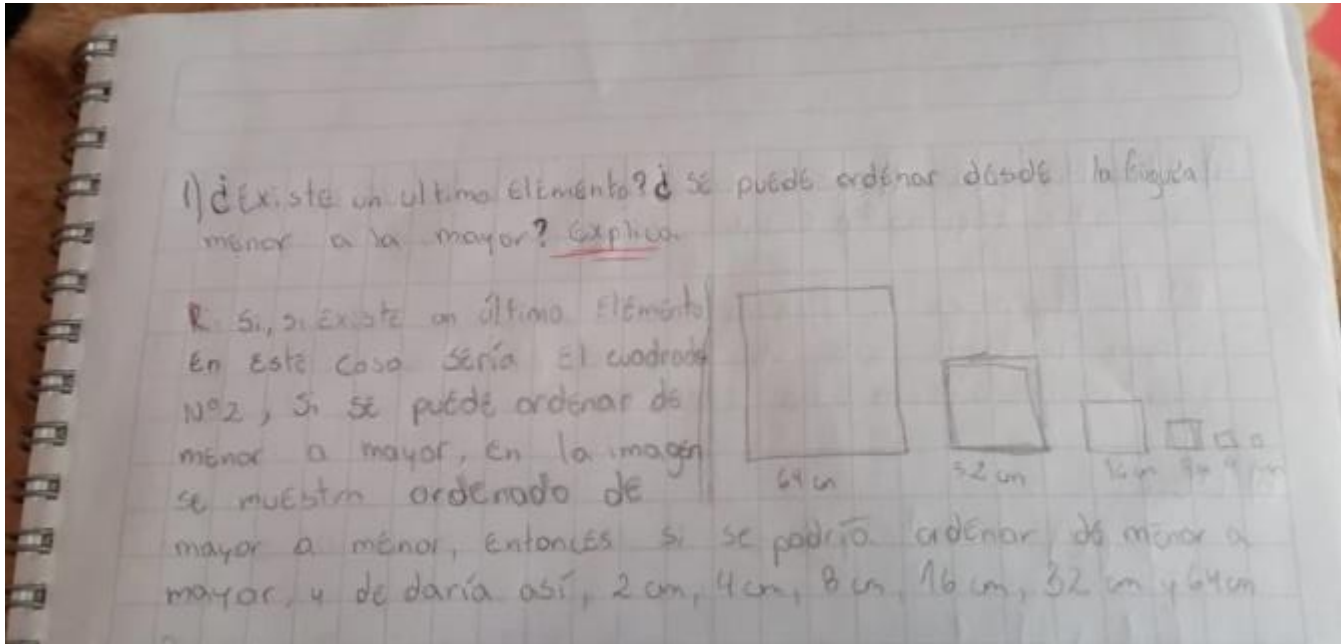 1) ¿Existe un ultimo elemento? ¿ se puede ordenar desde la figura
menor a la mayor? Explica.
R. Si, si existe un último elemento
En este caso sería el cuadrado
N°2, Si se puede ordenar de
menor a mayor, en la imagen
se muestra ordenado de
mayor a menor, entonces si se podría ordenar de menor a
mayor, y de daría así, 2 cm, 4 cm, 8 cm, 16 cm, 32 cm y 64 cm
64 cm
32 cm
16 cm